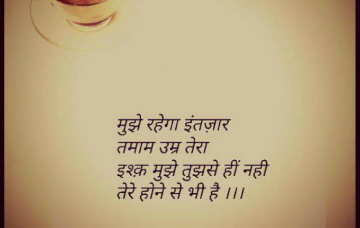 मुझे रहेगा इंतज़ार
तमाम उम्र तेरा
इश्क़ मुझे तुझसे हीं नही
तेरे होने से भी है ।।।